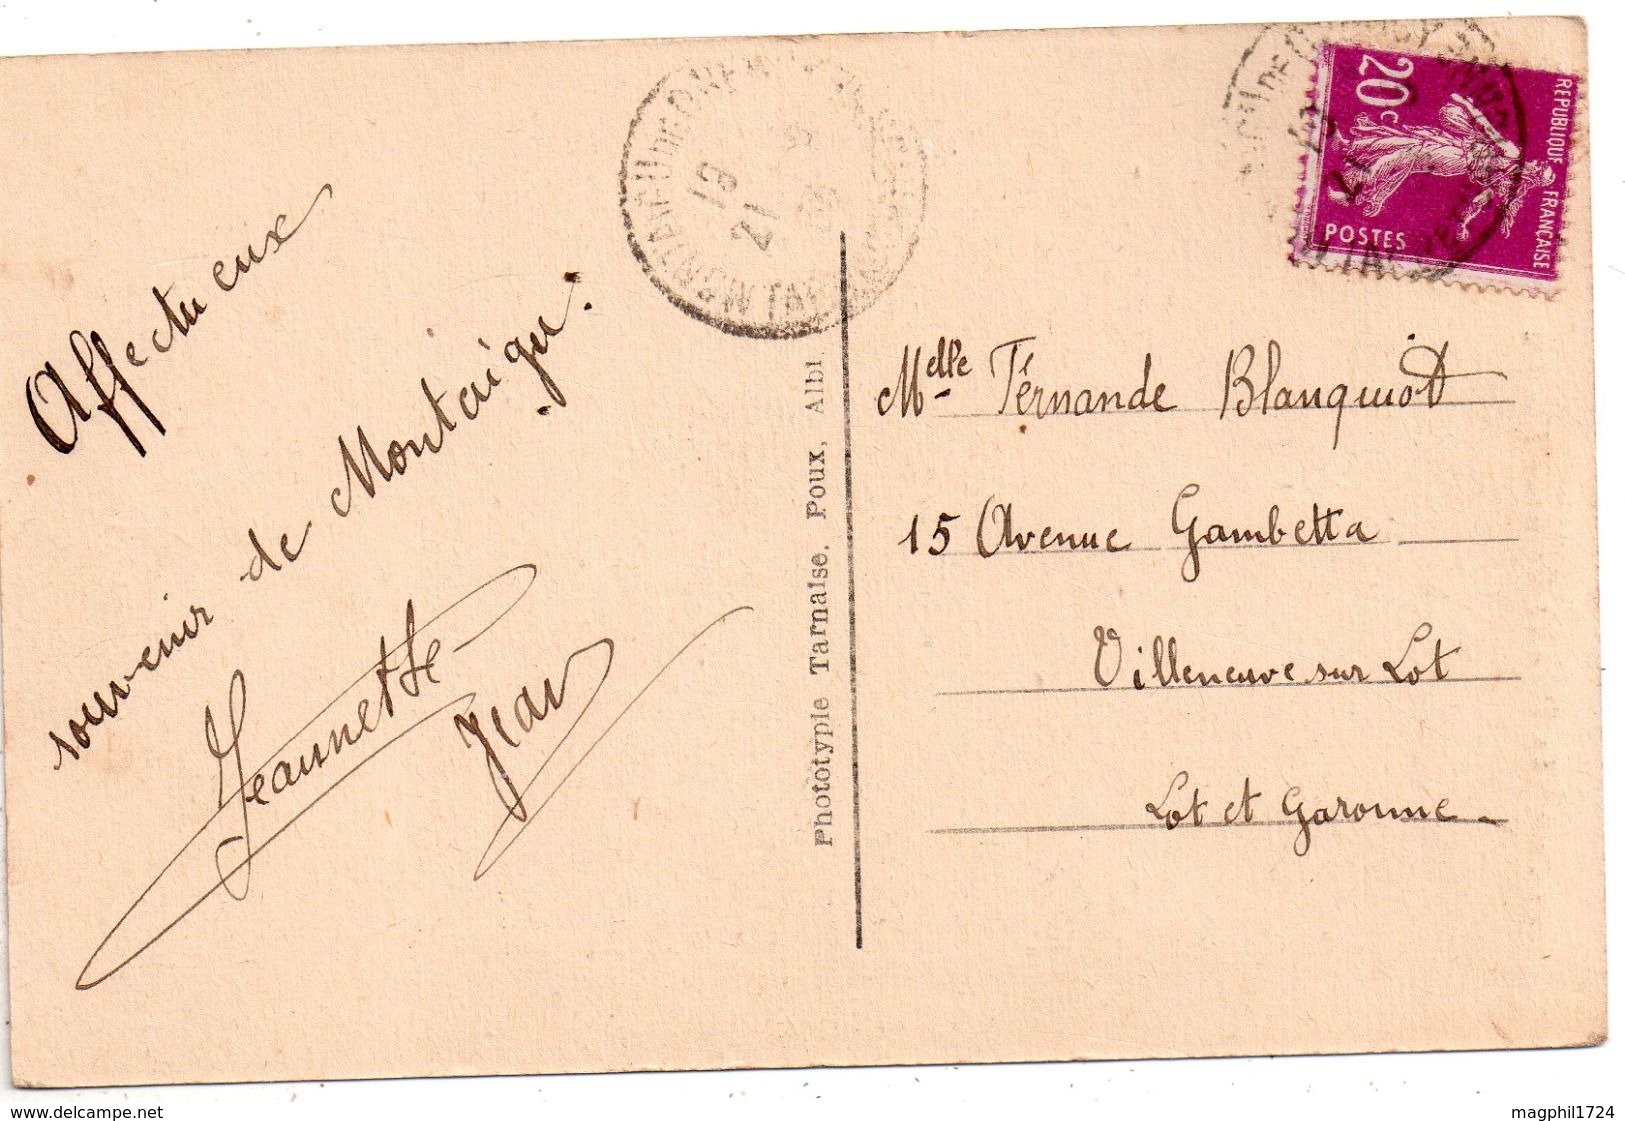 Affectueux
souvenir de Montaigu.
Jeannette
Jean
Phototypie Tarnaise, Poux, Albi
20c
REPUBLIQUE FRANCAISE
POSTES
19
21
Melle Fernande Blanquiot
15 Avenue Gambetta
Villeneuve sur Lot
Lot et Garonne -
www.delcampe.net
magphil1724